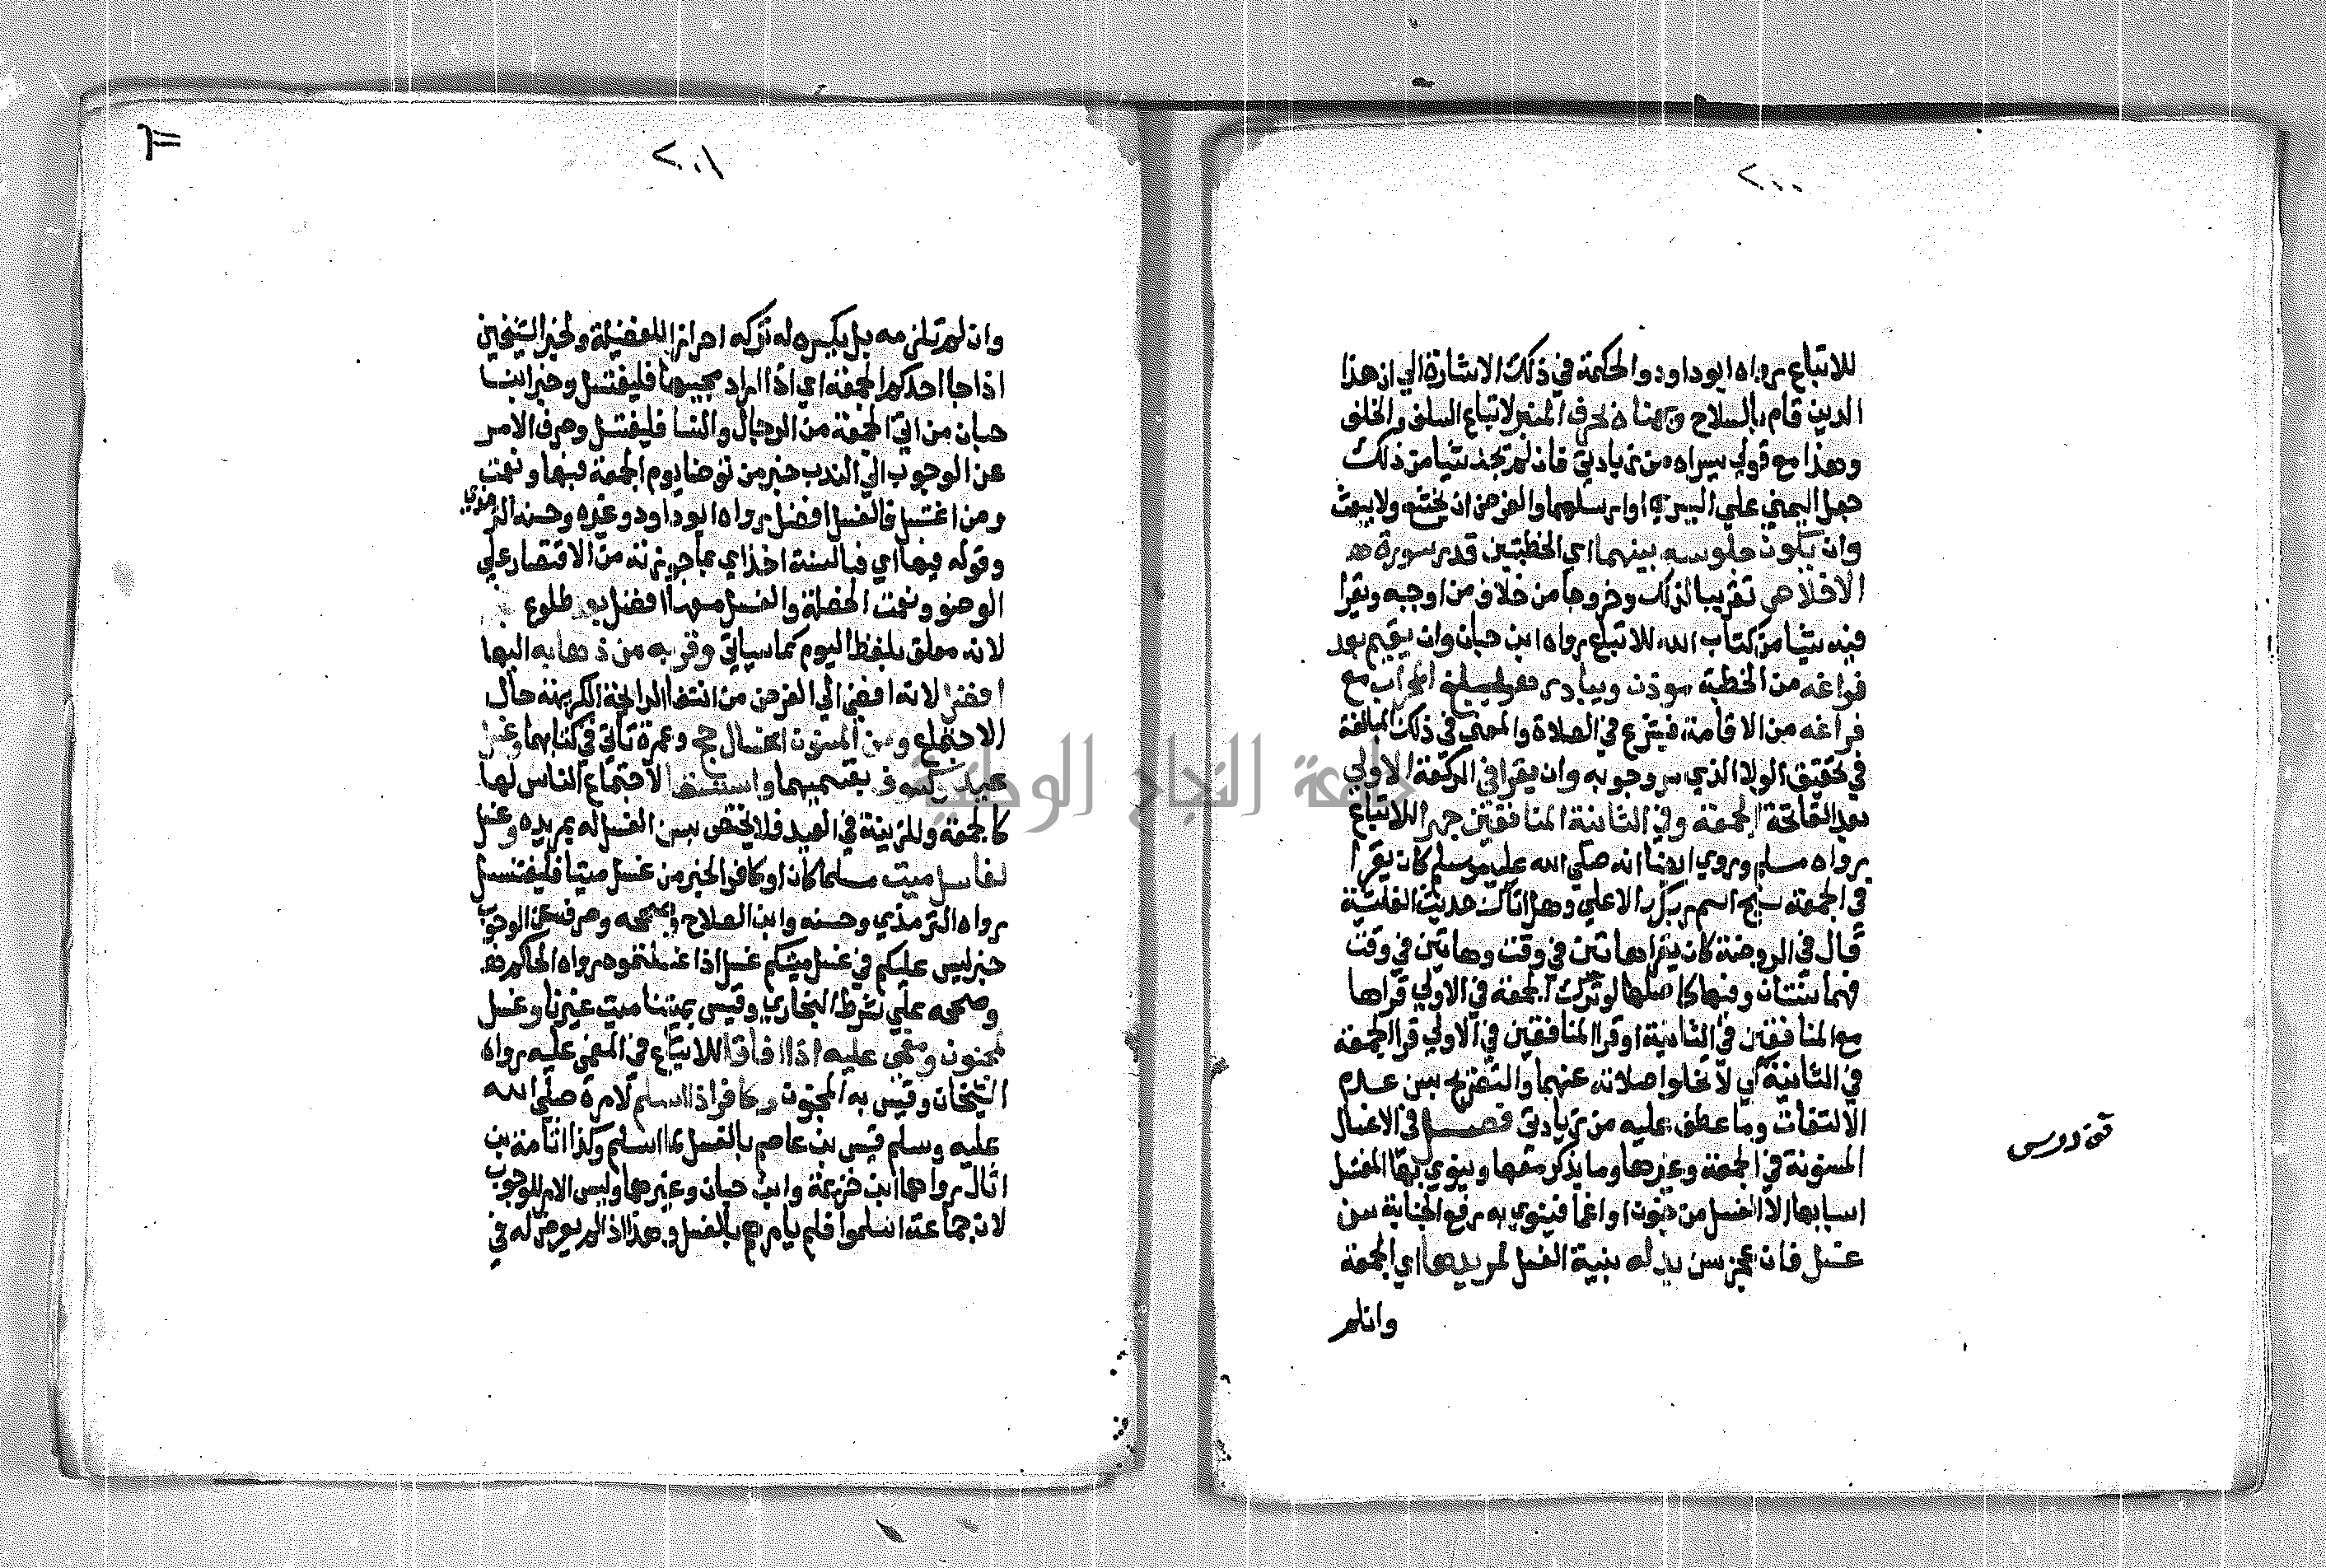 ٢٠٠
للاتباع رواه ابو داود والحكمة في ذلك الاشارة الي ان هذا
الدين قام بالسلاح ويمناه بحرف المنبر لاتباع السلف والخلف
وهذا مع قولي يسراه من زيادتي فان لم يجد شيا من ذلك
جعل اليمني علي اليسري او ارسلهما والغرض ان يخشع ولا يعبث
وان يكون جلوسه بينهما اي الخطبتين قدر سورة
الاخلاص تقريبا لذلك وخروجا من خلاف من اوجبه ويقرا
فيه شيا من كتاب الله للاتباع رواه ابن حبان وان يقيم بعد
فراغه من الخطبة موذن ويبادر هو ليبلغ المحراب مع
فراغه من الاقامة فيشرع في الصلاة والمعني في ذلك المبالغة
في تحقيق الولا الذي مر وجوبه وان يقرا في الركعة الاولي
بعد الفاتحة الجمعة وفي الثانية المنافقين جهرا للاتباع
رواه مسلم وروي ايضا انه صلي الله عليه وسلم كان يقرا
في الجمعة سبح اسم ربك الاعلي وهل اتاك حديث الغاشية
قال في الروضة كان يقرا هاتين في وقت وهاتين في وقت
فهما سنتان وفيها كاصلها لو ترك الجمعة في الاولي قراها
مع المنافقين في الثانية او قرا المنافقين في الاولي قرا الجمعة
في الثانية كي لا تخلوا صلاته عنهما والتصريح بسن عدم
الالتفات وما عطف عليه من زيادتي فصل في الاغسال
المسنونة في الجمعة وغيرها وما يذكر معها وينوي بها المغتسل
اسبابها الا الغسل من جنون او اغما فينوي به رفع الجنابة سن
غسل فان عجز سن بدله بنية الغسل لمريدها اي الجمعة
وان لم
٢٠١
وان لم تلزمه بل يكره له تركه احرازا للفضيلة ولخبر الشيخين
اذا جا احدكم الجمعة اي اذا اراد مجيها فليغتسل وخبر ابن
حبان من اتي الجمعة من الرجال والنسا فليغتسل وصرف الامر
عن الوجوب الي الندب خبر من توضا يوم الجمعة فبها ونعمت
ومن اغتسل فالغسل افضل رواه ابو داود وغيره وحسنه الترمذي
وقوله فبها اي فبالسنة اخذ اي بما جوزته من الاقتصار علي
الوضو ونعمت الخصلة والغسل معها افضل بعد طلوع
لانه معلق بلفظ اليوم كما سياتي وقربه من ذهابه اليها
افضل لانه افضي الي الغرض من انتفا الرائحة الكريهة حال
الاجتماع ومن المسنون اغتسال حج وعمرة تاتي في كتابهما وغسل
عيد وكسوف بقسميهما واستسقا لاجتماع الناس لها
كالجمعة وللزينة في العيد فلا يختص بسن الغسل له بمريده وغسل
لغاسل ميت مسلما كان او كافرا لخبر من غسل ميتا فليغتسل
رواه الترمذي وحسنه وابن الصلاح وصححه وصرف عن الوجوب
خبر ليس عليكم في غسل ميتكم غسل اذا غسلتموه رواه الحاكم
وصححه علي شرط البخاري وقيس بميتنا ميت غيرنا وغسل
لمجنون ومغمي عليه اذا افاقا للاتباع في المغمي عليه رواه
الشيخان وقيس به المجنون وكافر اذا اسلم لامره صلي الله
عليه وسلم قيس بن عاصم بالغسل لما اسلم وكذا ثمامة بن
اثال رواهما ابن خزيمة وابن حبان وغيرهما وليس الامر للوجوب
لان جماعة اسلموا فلم يامرهم بالغسل وهذا اذا لم يعرض له في
جامعة النجاح الوطنية